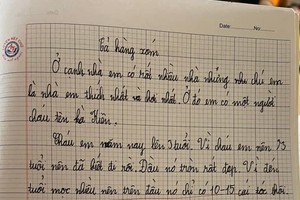 Date: No:
Tả hàng xóm
Ở cạnh nhà em có rất nhiều nhà nhưng nhà chú em
là nhà em thích nhất và hơi nhất. Ở đó em có một người
cháu tên hà Hiên.
Cháu em năm nay lên 3 tuổi. Vì cháu em nên 3
tuổi nên đã biết đi rồi. Đầu nó tròn rất đẹp. Vì đến
tuổi mọc nhiều nên trên đầu nó chỉ có 10-15 cái tóc thôi.